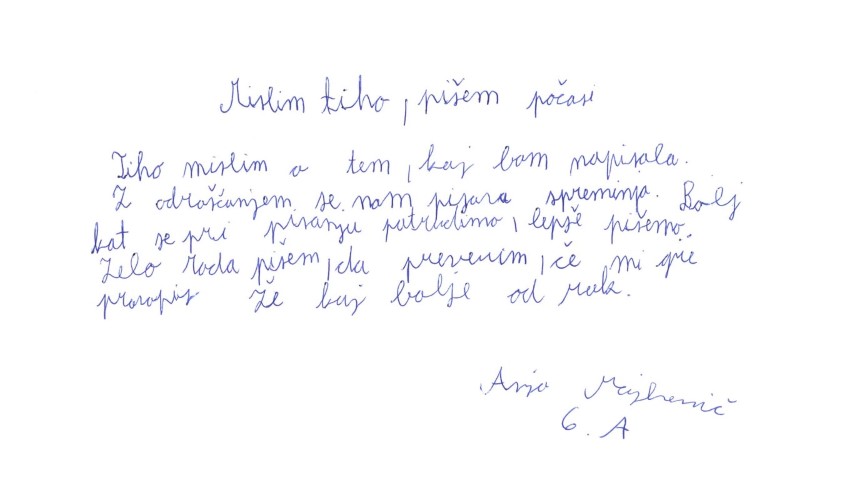 Mislim tiho, pišem počasi
Tiho mislim o tem, kaj bom napisala.
Z odraščanjem se nam pisava spreminja. Bolj
kot se pri pisanju potrudimo, lepše pišemo.
Zelo rada pišem, da preverim, če mi gre
pravopis že kaj bolje od rok.
Anja
6. A